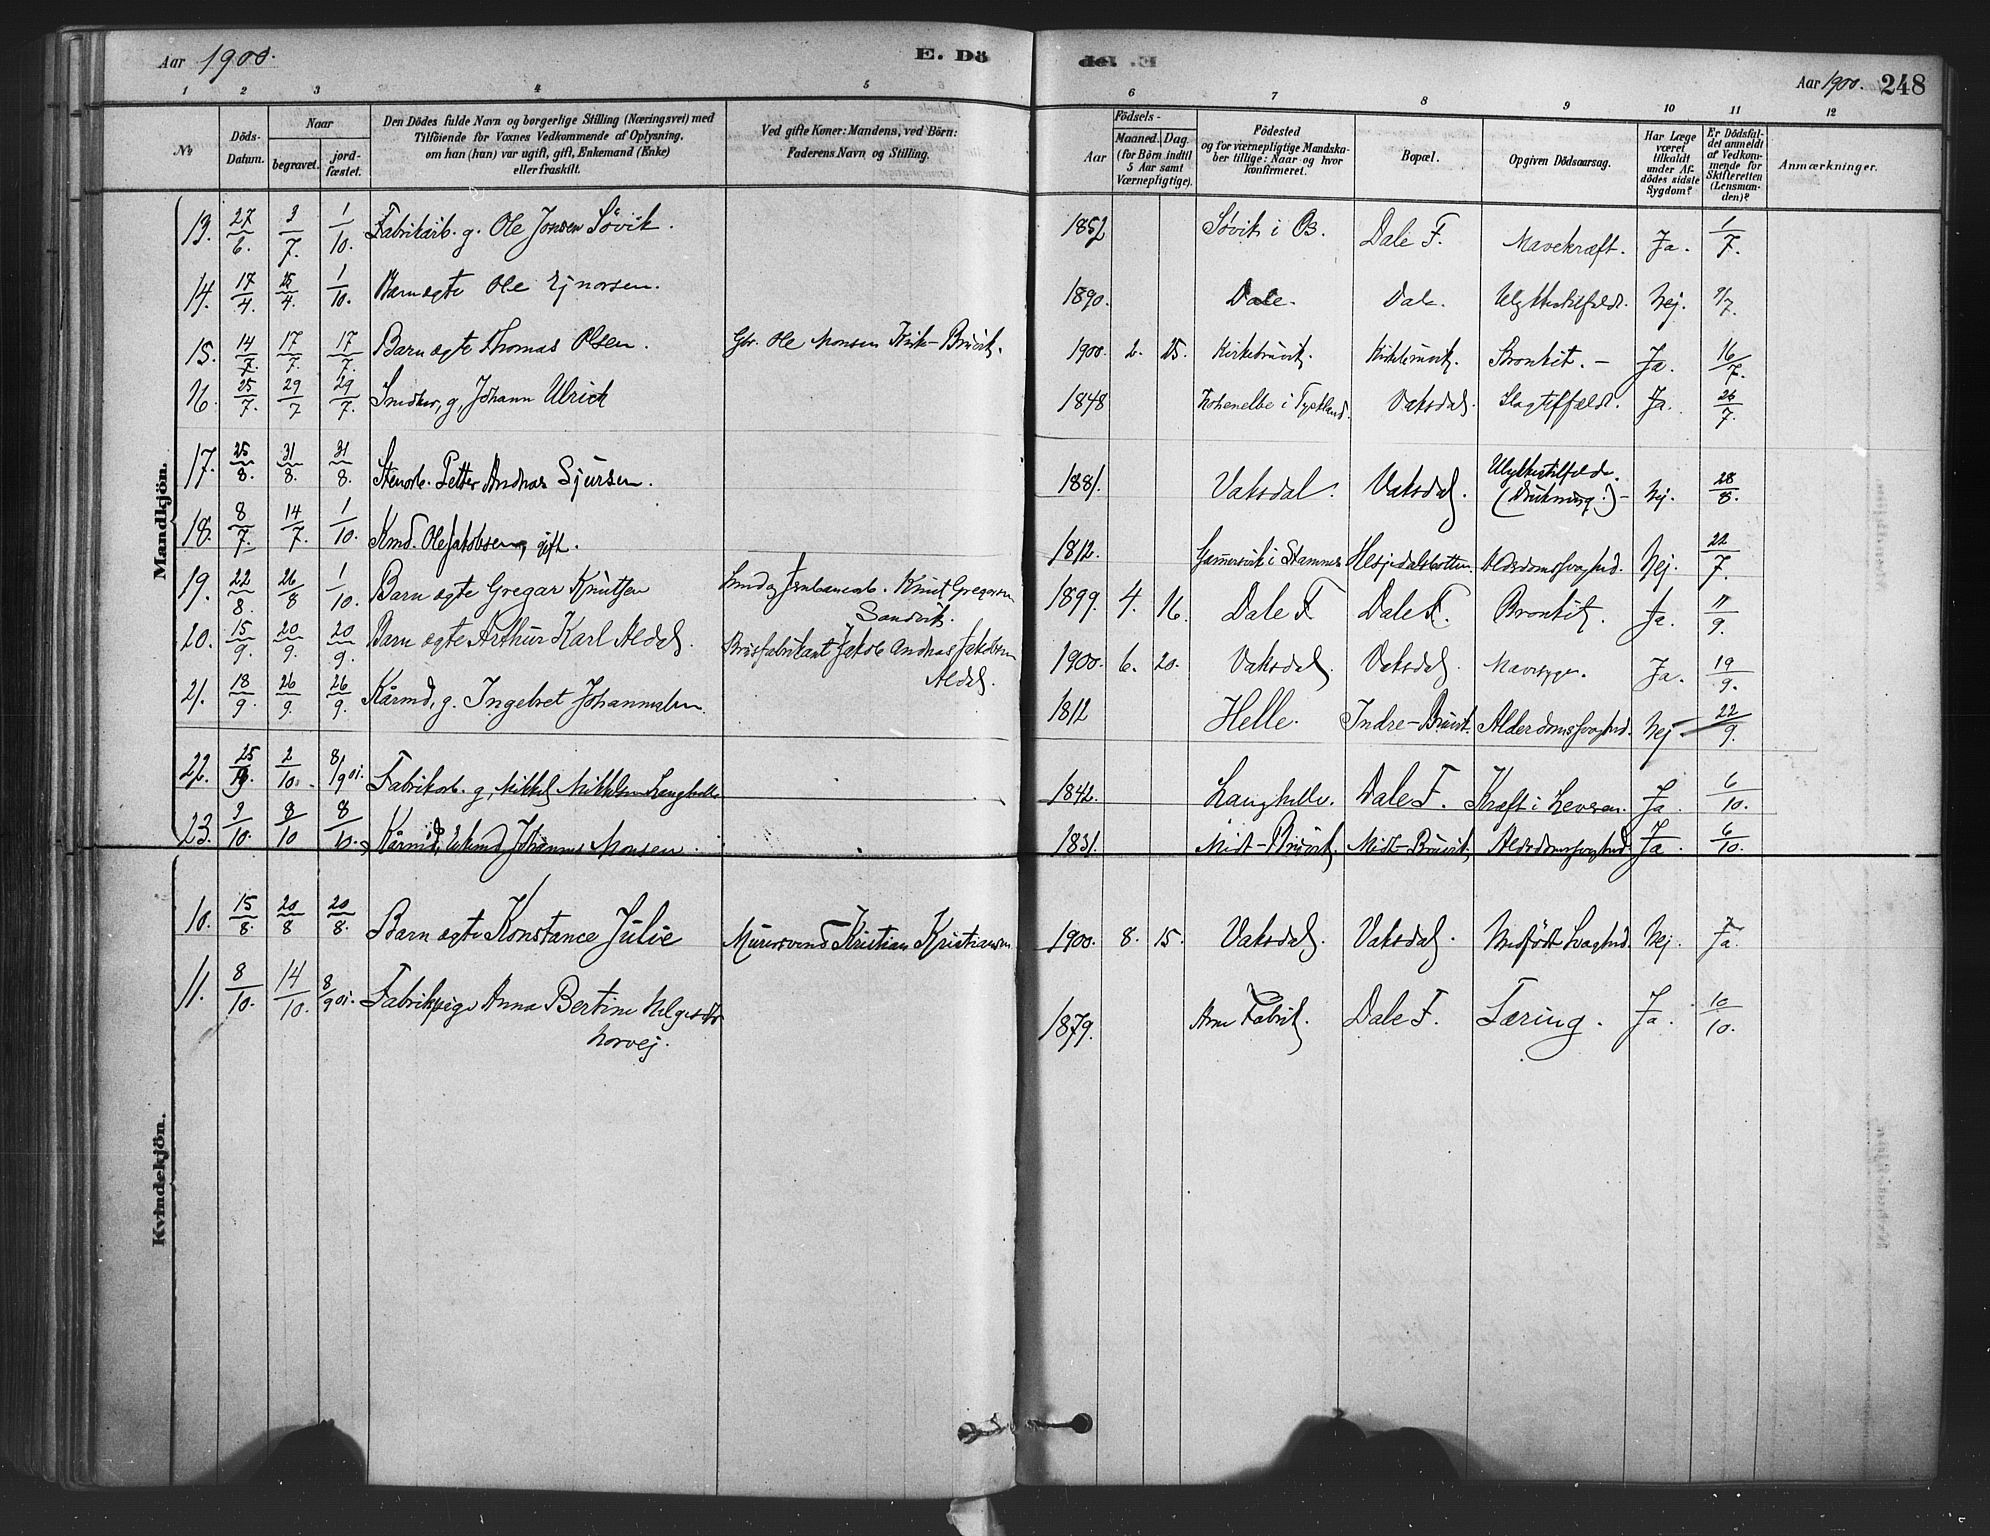 Aar 1900.
E. Dö
del. E
Aar 1900. 248
1 2 3 4 5 6 7 8 9 10 11 12
No
Döds-Datum.
Naar
begravet.
jord-fæstet.
Den Dödes fulde Navn og borgerlige Stilling (Næringsvei) med
Tilföiende for Voxnes Vedkommende af Oplysning,
om han (hun) var ugift, gift, Enkemand (Enke)
eller fraskilt.
Ved gifte Koner: Mandens, ved Börn:
Faderens Navn og Stilling.
Födsels-
Aar
Maaned. Dag
(for Börn indtil
5 Aar samt
Værnepligtige).
Födested
og for værnepligtige Mandska-
ber tillige: Naar og hvor
konfirmeret.
Bopæl.
Opgiven Dödsaarsag.
Har Læge
været
tilkaldt
under Af-
dödes sidste
Sygdom?
Er Dödsfal-
det anmeldt
af Vedkom-
mende for
Skifteretten
(Lensman-
den)?
Anmærkninger.
Mandkjön.
13. 27/6. 3/7. 1/10. Fabrikarb. g. Ole Jonsen Søvik. 1852 Søvik i Os. Dale F. Mavekræft. Ja. 1/7.
14. 17/4. 25/4. 1/10. Barn ægte Ole Ejnorsen. 1890. Dale. Dale. Ulykkestilfælde. Nej. 9/7.
15. 14/7. 17/7. 17/7. Barn ægte Thomas Olsen. Gbr. Ole Monsen Kirke-Bruvik. 1900. 2. 25. Kirkebruvik. Kirkebruvik. Bronkit. – Ja. 16/7.
16. 25/7. 29/7 29/7. Snedker, g, Johann Ulrich 1848 Hohenelbe i Tyskland. Vaksdal. Slagtilfælde. Ja. 26/7.
17. 25/8. 31/8. 31/8. Stenarb. Petter Andreas Sjursen. 1881. Vaksdal. Vaksdal. Ulykkestilfælde. (Drukning.) – Nej. 28/8.
18. 8/7. 14/7. 1/10. Kmd. Ole Jakobsen, gift. 1812. i Stamnes Hesjedalsbotten. Alderdomssvaghed. Nej. 22/7.
19. 22/8. 26/8 1/10. Barn ægte Gregar Knutsen Knut Gregersen
Sandvik. 1899. 4. 16. Dale F. Dale F. Bronkit. Ja. 11/9.
20. 15/9. 20/9. 20/9. Barn ægte Arthur Karl Aldal. Brusfabrikant Jakob Andreas Jakobsen
Aldal. 1900. 6. 20. Vaksdal. Vaksdal. Mavesyge. Ja. 19/9.
21. 18/9. 26/9. 26/9. Kårmd, g. Ingebret Johannesen. 1812 Helle. Indre-Bruvik. Alderdomssvaghed. Nej 22/9.
22. 25/9. 2/10. 8/9 01. Fabrikarb. g, Mikkel Mikkelsen Langhelle 1842. Langhelle. Dale F. Kræft i Leveren. Ja. 6/10.
23. 3/10. 8/10 8/10. Kårmd, Ekmd Johannes Monsen. 1831. Midt-Bruvik. Midt-Bruvik. Alderdomssvaghed. Ja. 6/10.
Kvindekjön.
10. 15/8. 20/8 20/8. Barn ægte Konstance Julie Murersvend Kristian Kristiansen 1900. 8. 15. Vaksdal. Vaksdal. Medfødt Svaghed. Nej. Ja.
11. 8/10. 14/10. 8/9 01. Fabrikpige Anna Bertine Helgesdtr
Norvej. 1879. Arne Fabrik. Dale F. Tæring. Ja. 10/10.